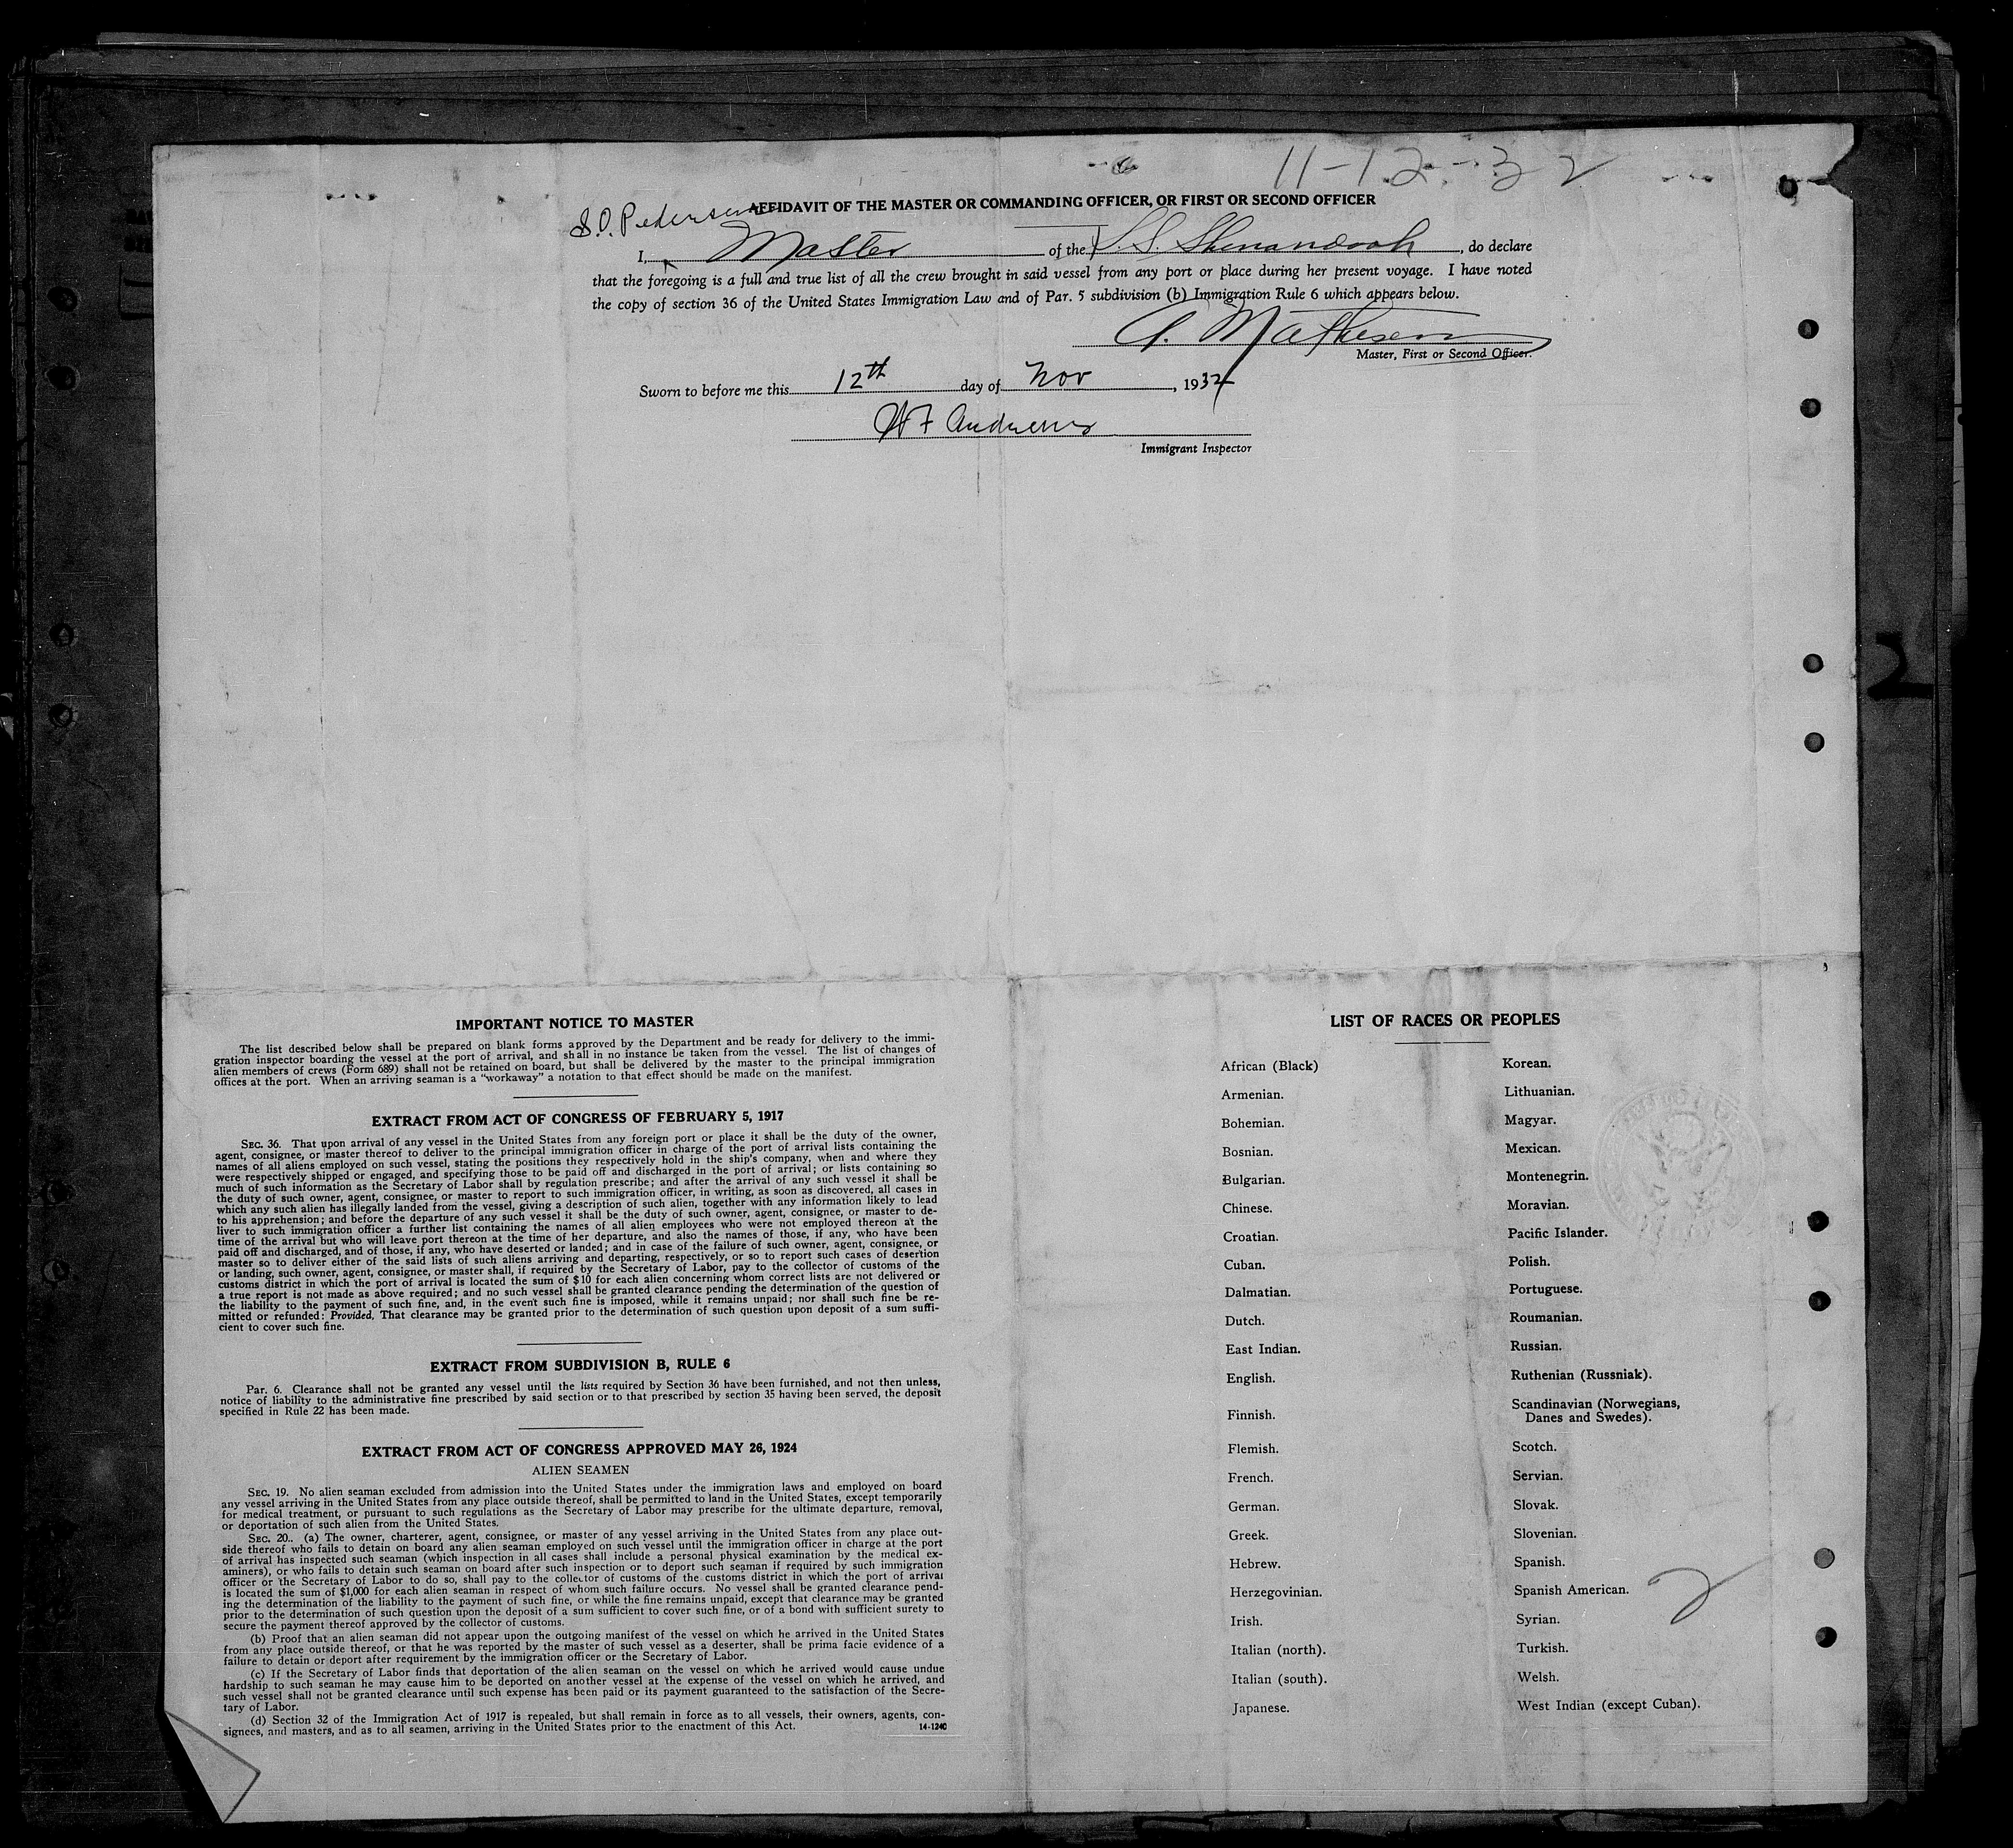 11-12-32
AFFIDAVIT OF THE MASTER OR COMMANDING OFFICER, OR FIRST OR SECOND OFFICER
S.O. Pedersen
I, Master of the S.S. Shenandoah, do declare
that the foregoing is a full and true list of all the crew brought in said vessel from any port or place during her present voyage. I have noted
the copy of section 36 of the United States Immigration Law and of Par. 5 subdivision (b) Immigration Rule 6 which appears below.
A. Mathesen
Master, First or Second Officer.
Sworn to before me this 12th day of Nov, 1932
H F Andrews
Immigrant Inspector
2
IMPORTANT NOTICE TO MASTER
The list described below shall be prepared on blank forms approved by the Department and be ready for delivery to the immi-
gration inspector boarding the vessel at the port of arrival, and shall in no instance be taken from the vessel. The list of changes of
alien members of crews (Form 689) shall not be retained on board, but shall be delivered by the master to the principal immigration
offices at the port. When an arriving seaman is a "workaway" a notation to that effect should be made on the manifest.
EXTRACT FROM ACT OF CONGRESS OF FEBRUARY 5, 1917
SEC. 36. That upon arrival of any vessel in the United States from any foreign port or place it shall be the duty of the owner,
agent, consignee, or master thereof to deliver to the principal immigration officer in charge of the port of arrival lists containing the
names of all aliens employed on such vessel, stating the positions they respectively hold in the ship's company, when and where they
were respectively shipped or engaged, and specifying those to be paid off and discharged in the port of arrival; or lists containing so
much of such information as the Secretary of Labor shall by regulation prescribe; and after the arrival of any such vessel it shall be
the duty of such owner, agent, consignee, or master to report to such immigration officer, in writing, as soon as discovered, all cases in
which any such alien has illegally landed from the vessel, giving a description of such alien, together with any information likely to lead
to his apprehension; and before the departure of any such vessel it shall be the duty of such owner, agent, consignee, or master to de-
liver to such immigration officer a further list containing the names of all alien employees who were not employed thereon at the
time of the arrival but who will leave port thereon at the time of her departure, and also the names of those, if any, who have been
paid off and discharged, and of those, if any, who have deserted or landed; and in case of the failure of such owner, agent, consignee, or
master so to deliver either of the said lists of such aliens arriving and departing, respectively, or so to report such cases of desertion
or landing, such owner, agent, consignee, or master shall, if required by the Secretary of Labor, pay to the collector of customs of the
customs district in which the port of arrival is located the sum of $10 for each alien concerning whom correct lists are not delivered or
a true report is not made as above required; and no such vessel shall be granted clearance pending the determination of the question of
the liability to the payment of such fine, and, in the event such fine is imposed, while it remains unpaid; nor shall such fine be re-
mitted or refunded: Provided, That clearance may be granted prior to the determination of such question upon deposit of a sum suffi-
cient to cover such fine.
EXTRACT FROM SUBDIVISION B, RULE 6
Par. 6. Clearance shall not be granted any vessel until the lists required by Section 36 have been furnished, and not then unless,
notice of liability to the administrative fine prescribed by said section or to that prescribed by section 35 having been served, the deposit
specified in Rule 22 has been made.
EXTRACT FROM ACT OF CONGRESS APPROVED MAY 26, 1924
ALIEN SEAMEN
SEC. 19. No alien seaman excluded from admission into the United States under the immigration laws and employed on board
any vessel arriving in the United States from any place outside thereof, shall be permitted to land in the United States, except temporarily
for medical treatment, or pursuant to such regulations as the Secretary of Labor may prescribe for the ultimate departure, removal,
or deportation of such alien from the United States.
SEC. 20.. (a) The owner, charterer, agent, consignee, or master of any vessel arriving in the United States from any place out-
side thereof who fails to detain on board any alien seaman employed on such vessel until the immigration officer in charge at the port
of arrival has inspected such seaman (which inspection in all cases shall include a personal physical examination by the medical ex-
aminers), or who fails to detain such seaman on board after such inspection or to deport such seaman if required by such immigration
officer or the Secretary of Labor to do so, shall pay to the collector of customs of the customs district in which the port of arrival
is located the sum of $1,000 for each alien seaman in respect of whom such failure occurs. No vessel shall be granted clearance pend-
ing the determination of the liability to the payment of such fine, or while the fine remains unpaid, except that clearance may be granted
prior to the determination of such question upon the deposit of a sum sufficient to cover such fine, or of a bond with sufficient surety to
secure the payment thereof approved by the collector of customs.
(b) Proof that an alien seaman did not appear upon the outgoing manifest of the vessel on which he arrived in the United States
from any place outside thereof, or that he was reported by the master of such vessel as a deserter, shall be prima facie evidence of a
failure to detain or deport after requirement by the immigration officer or the Secretary of Labor.
(c) If the Secretary of Labor finds that deportation of the alien seaman on the vessel on which he arrived would cause undue
hardship to such seaman he may cause him to be deported on another vessel at the expense of the vessel on which he arrived, and
such vessel shall not be granted clearance until such expense has been paid or its payment guaranteed to the satisfaction of the Secre-
tary of Labor.
(d) Section 32 of the Immigration Act of 1917 is repealed, but shall remain in force as to all vessels, their owners, agents, con-
signees, and masters, and as to all seamen, arriving in the United States prior to the enactment of this Act.
14-1240
LIST OF RACES OR PEOPLES
African (Black)
Armenian.
Bohemian.
Bosnian.
Bulgarian.
Chinese.
Croatian.
Cuban.
Dalmatian.
Dutch.
East Indian.
English.
Finnish.
Flemish.
French.
German.
Greek.
Hebrew.
Herzegovinian.
Irish.
Italian (north).
Italian (south).
Japanese.
Korean.
Lithuanian.
Magyar.
Mexican.
Montenegrin.
Moravian.
Pacific Islander.
Polish.
Portuguese.
Roumanian.
Russian.
Ruthenian (Russniak).
Scandinavian (Norwegians,
Danes and Swedes).
Scotch.
Servian.
Slovak.
Slovenian.
Spanish.
Spanish American.
Syrian.
Turkish.
Welsh.
West Indian (except Cuban).
2